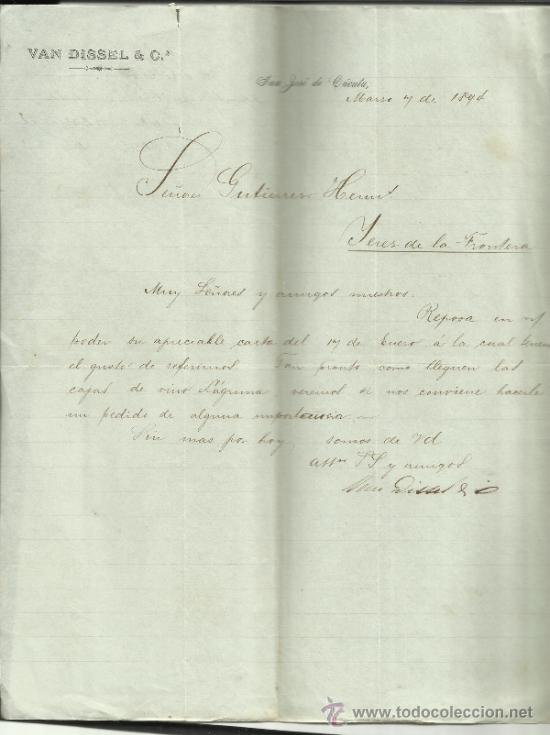 VAN DISSEL & C.ª
San José de Cúcuta,
Marso 7 de 1894
Señores Gutierres Herms
Jeres de la Frontera
Muy Señores y amigos nuestros.
Reposa en n/
poder su apreciable carta del 17 de Enero a la cual tenemos
el gusto de referirnos Tan pronto como lleguen las
cajas de vino Lágrima, veremos si nos conviene hacerle
un pedido de alguna importancia
Sin mas por hoy, somos de Vd
Attos SS y amigos
Van Dissel & Co
www.todocoleccion.net